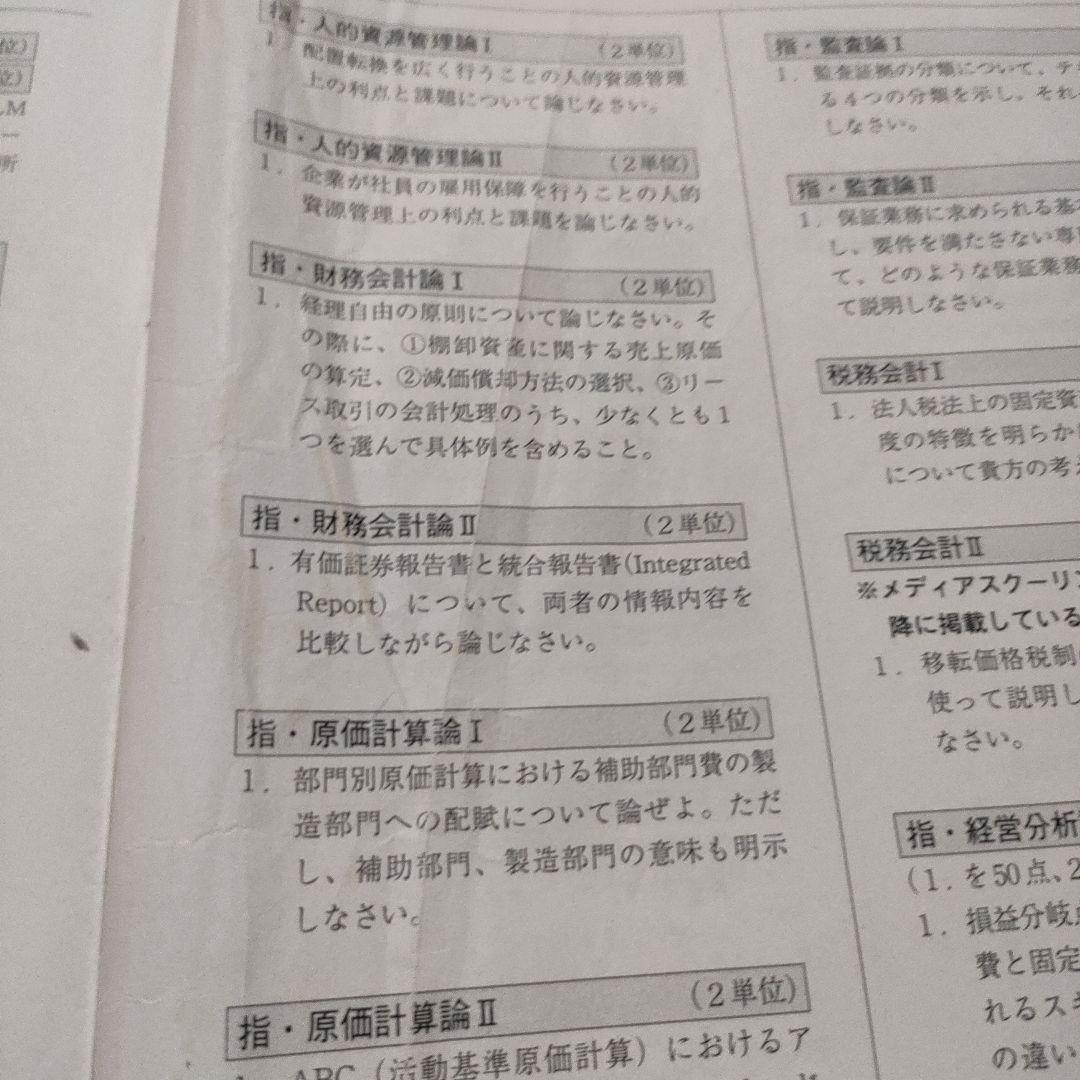 位)
位)
LM
ー
所
指・人的資源管理論Ⅰ (2単位)
1. 配置転換を広く行うことの人的資源管理
上の利点と課題について論じなさい。
指・人的資源管理論Ⅱ (2単位)
1. 企業が社員の雇用保障を行うことの人的
資源管理上の利点と課題を論じなさい。
指・財務会計論Ⅰ (2単位)
1. 経理自由の原則について論じなさい。そ
の際に、①棚卸資産に関する売上原価
の算定、②減価償却方法の選択、③リー
ス取引の会計処理のうち、少なくとも1
つを選んで具体例を含めること。
指・財務会計論Ⅱ (2単位)
1. 有価証券報告書と統合報告書(Integrated
Report) について、両者の情報内容を
比較しながら論じなさい。
指・原価計算論Ⅰ (2単位)
1. 部門別原価計算における補助部門費の製
造部門への配賦について論ぜよ。ただ
し、補助部門、製造部門の意味も明示
しなさい。
指・原価計算論Ⅱ (2単位)
1. ABC (活動基準原価計算) におけるア
指・監査論Ⅰ
1. 監査証拠の分類について、テ
る4つの分類を示し、それ
しなさい。
指・監査論Ⅱ
1. 保証業務に求められる基
し、要件を満たさない専
て、どのような保証業務
て説明しなさい。
税務会計Ⅰ
1. 法人税法上の固定資
度の特徴を明らか
について貴方の考
税務会計Ⅱ
※メディアスクーリン
降に掲載している
1. 移転価格税制
使って説明し
なさい。
指・経営分析
(1. を50点、2
1. 損益分岐
費と固定
れるスキ
の違い